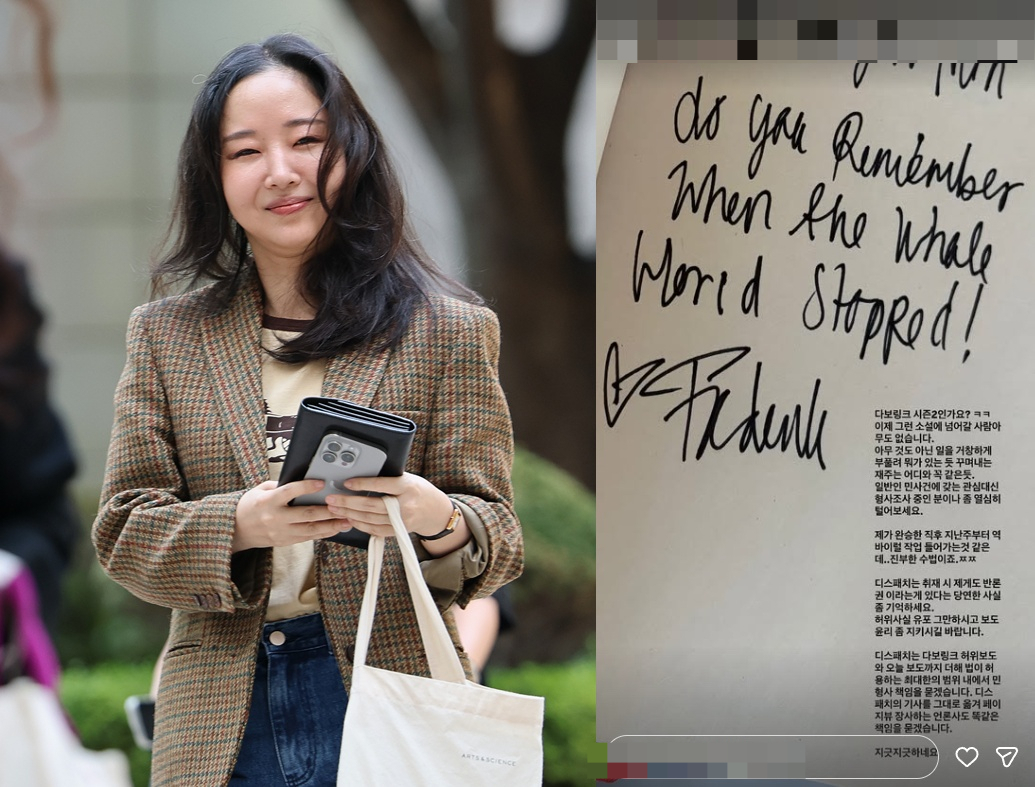 do you Remember
When the Whole
World Stopped!
ARTS&SCIENCE
다보링크 시즌2인가요? ㅋㅋ
이제 그런 소설에 넘어갈 사람아
무도 없습니다.
아무 것도 아닌 일을 거창하게
부풀려 뭐가 있는 듯 꾸며내는
재주는 어디와 꼭 같은듯.
일반인 민사건에 갖는 관심대신
형사조사 중인 분이나 좀 열심히
털어보세요.
제가 완승한 직후 지난주부터 역
바이럴 작업 들어가는것 같은
데..진부한 수법이죠.ㅉㅉ
디스패치는 취재 시 제게도 반론
권 이라는게 있다는 당연한 사실
좀 기억하세요.
허위사실 유포 그만하시고 보도
윤리 좀 지키시길 바랍니다.
디스패치는 다보링크 허위보도
와 오늘 보도까지 더해 법이 허
용하는 최대한의 범위 내에서 민
형사 책임을 묻겠습니다. 디스
패치의 기사를 그대로 옮겨 페이
지뷰 장사하는 언론사도 똑같은
책임을 묻겠습니다.
지긋지긋하네요